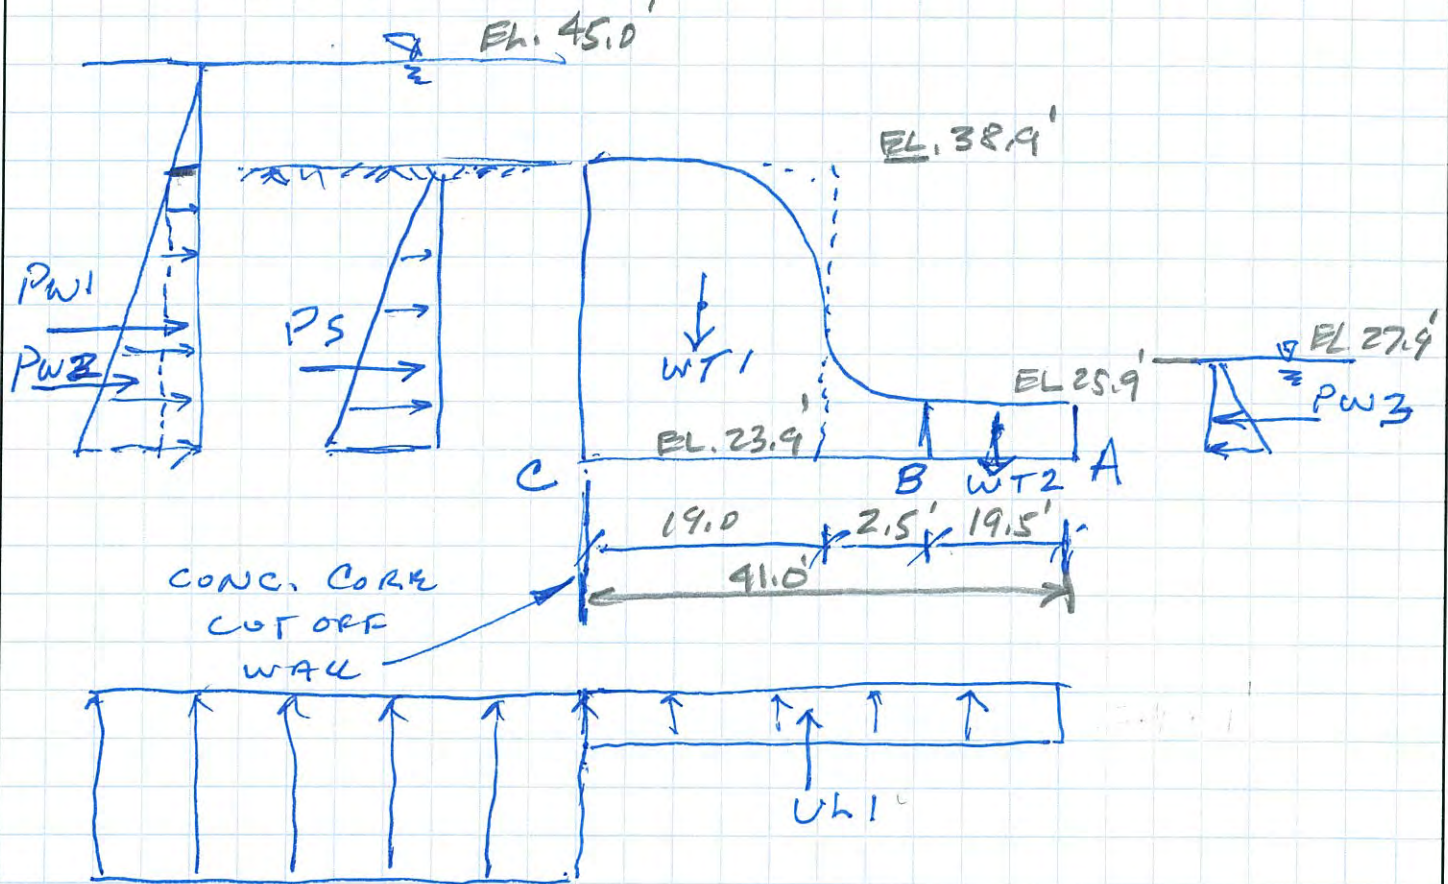 EL. 45.0'
EL. 38.9'
PW1
PW2
PS
WT1
EL 27.9'
PW3
EL 25.9'
EL. 23.9'
C
B
WT2
A
19.0
2.5'
19.5'
41.0'
CONC. CORE
CUT OFF
WALL
UL1